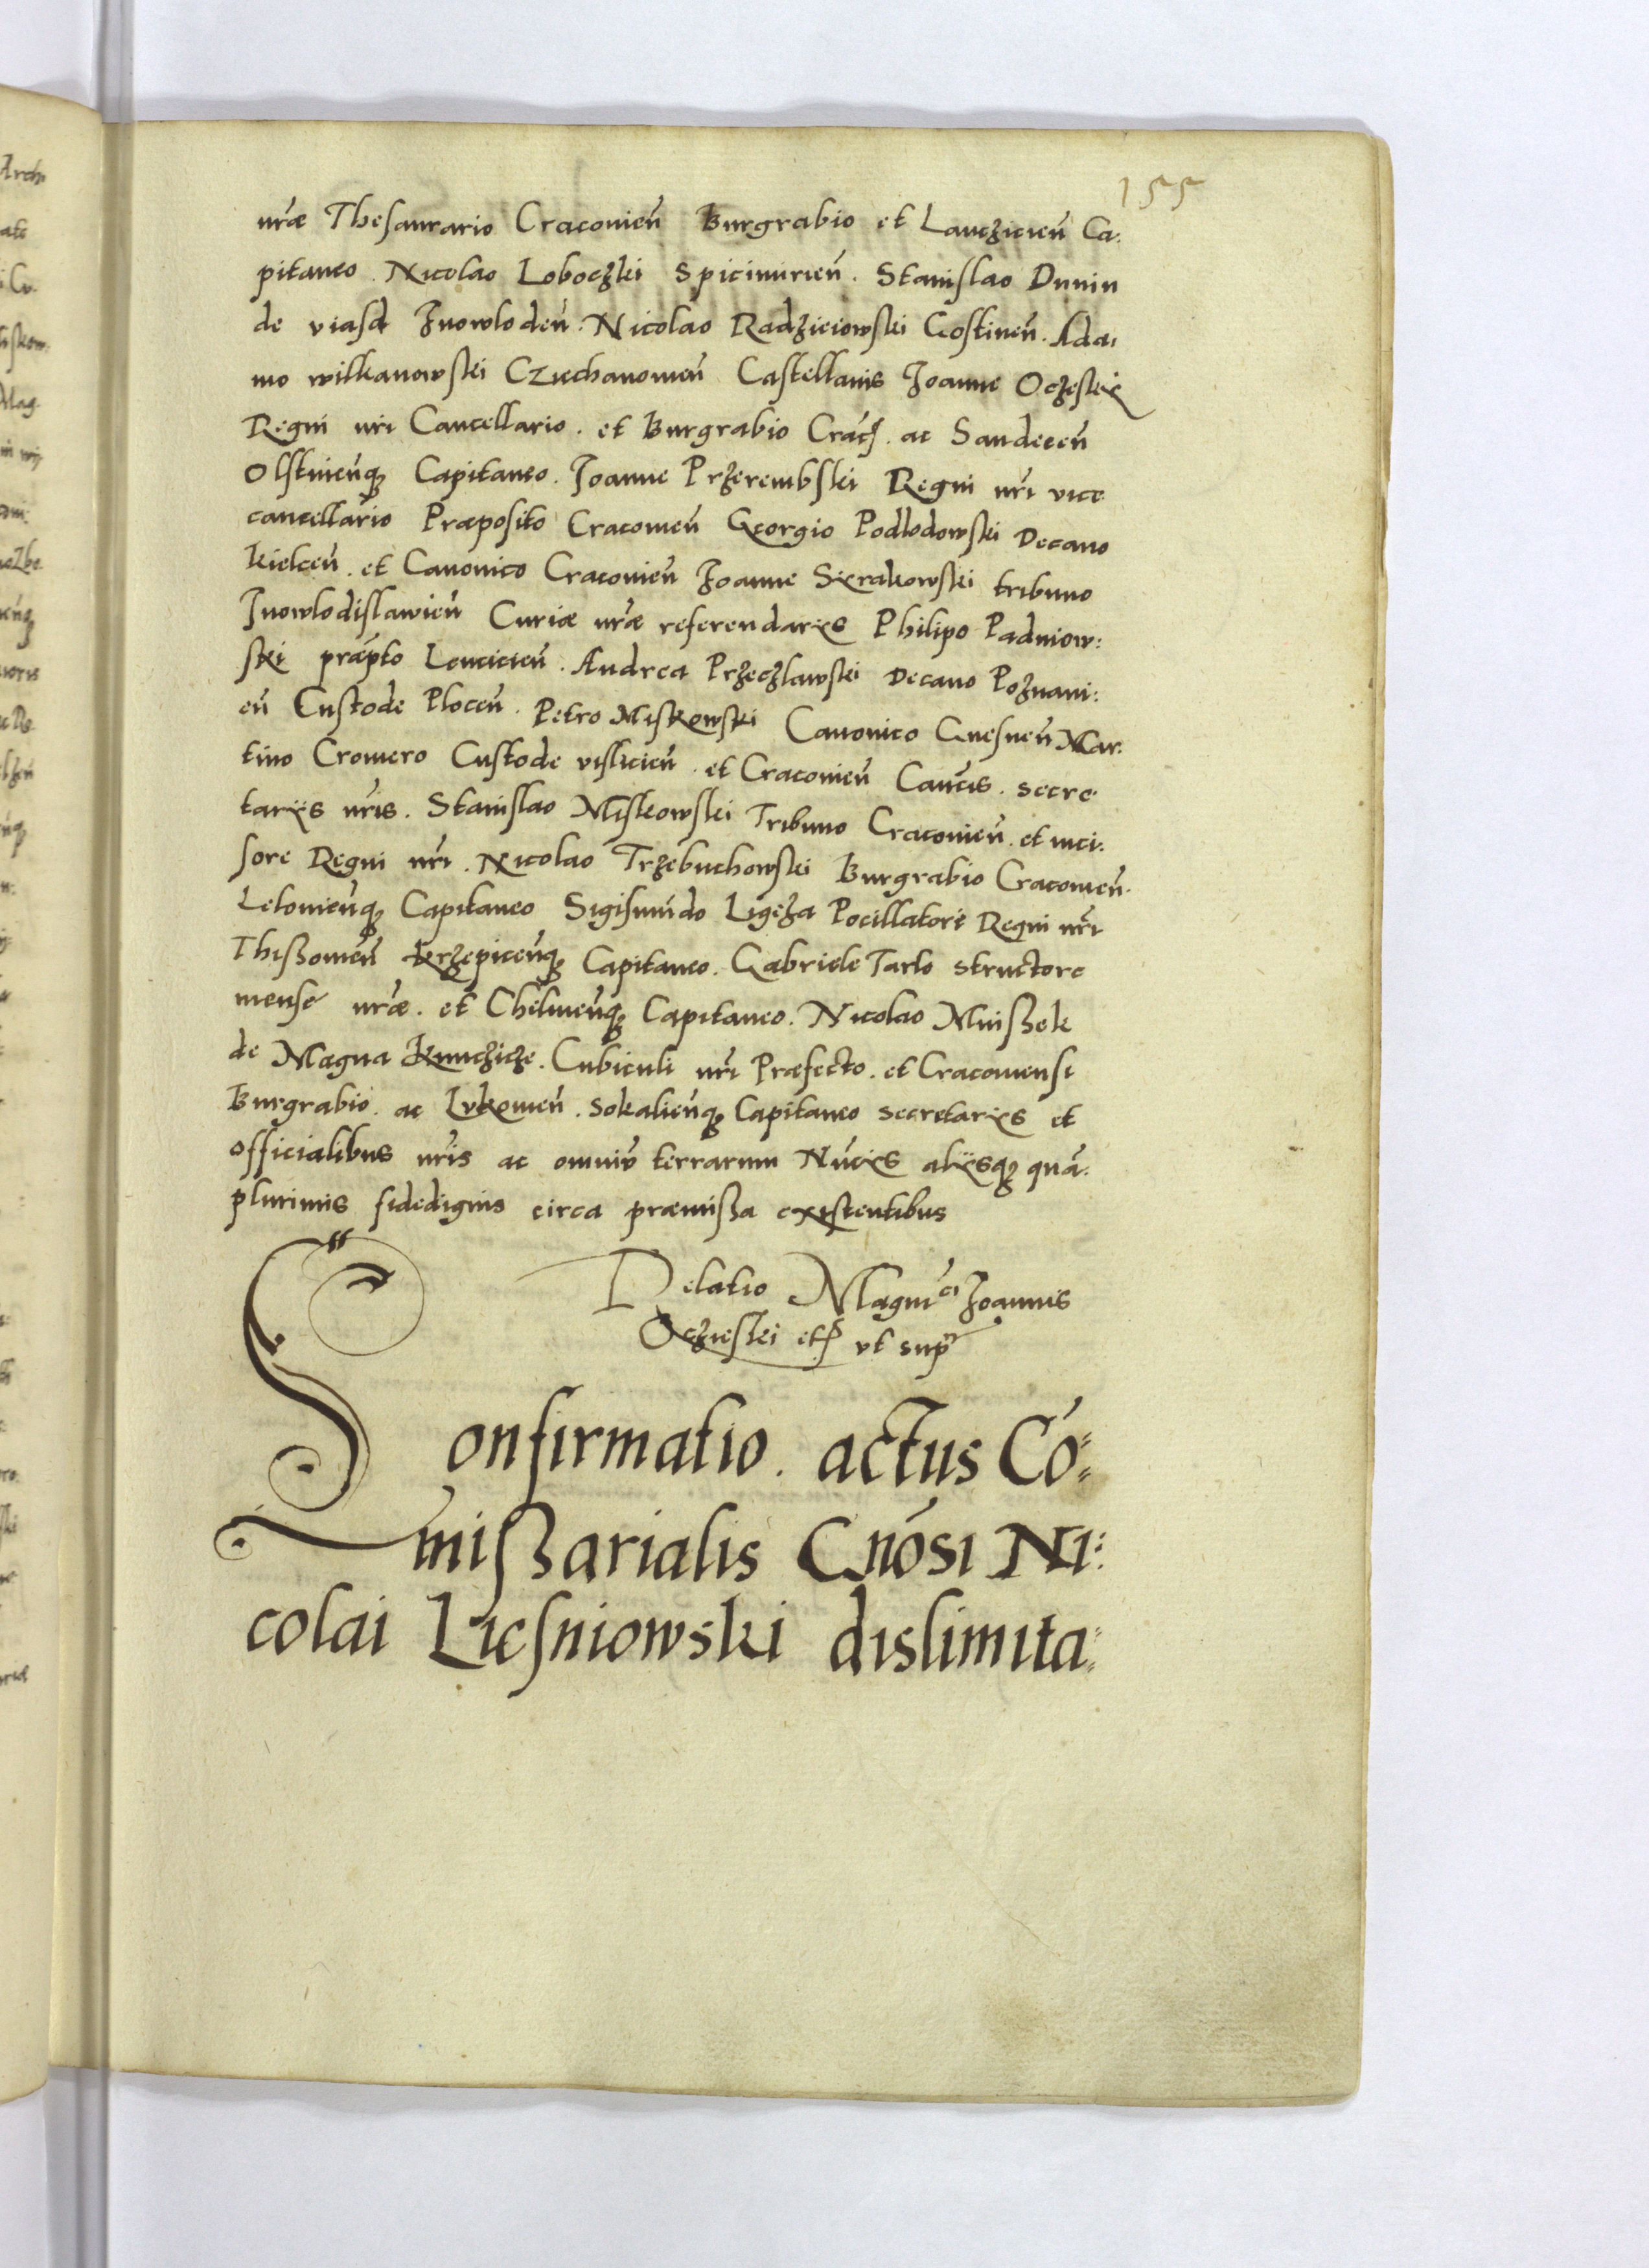 155
nrӕ Thesaurario Cracovien̄ Burgrabio et Lanczicien̄ Ca:
pitaneo. Nicolao Loboczki Spicimirien̄. Stanislao Dunin
de viasd Inowloden̄. Nicolao Radzieiowski Gostinen̄. Ada:
mo wilkanowski Cziechanowien̄ Castellanis Joanne Oczeskie
Regni nr̄i Cancellario. et Burgrabio Crac̄. ac Sandecen̄
Olstinien̄q; Capitaneo. Joanne Przerembski Regni nr̄i vice
cancellario Præposito Cracovien̄ Georgio Podlodowski Decano
Kielcen̄. et Canonico Cracovien̄ Joanne Sierakowski tribuno
Inowlodislawien̄ Curiæ nr̄æ referendarijs Philipo Padniow:
ski præp̄to Lencicien̄. Andrea Przeczlawski Decano Poznani:
en̄ Custode Plocen̄. Petro Miskowski Canonico Gnesnen̄ Mar:
tino Cromero Custode vislicien̄. et Cracovien̄ Can̄cis. secre
tarijs nr̄is. Stanislao Miskowski Tribuno Cracovien̄. et inci:
sore Regni nr̄i. Nicolao Trzebuchowski Burgrabio Cracovien̄.
Lelovien̄q; Capitaneo Sigismūdo Ligęza Pocillatore Regni nr̄i
Thißovien̄ krzepicen̄q; Capitaneo. Gabriele Tarlo structore
mensę nr̄æ. et Chelmen̄q; Capitaneo. Nicolao Mnißek
de Magna kunczicze. Cubiculi nr̄i Præfecto. et Cracoviensi
Burgrabio. ac Lukovien̄. Sokalien̄q; Capitaneo secretarijs et
officialibus nr̄is ac omniū terrarum Nūcijs alijsq; quā:
plurimis fidedignis circa præmißa existentibus
Relatio Magn̄ci Joannis
Oczieski etc̄ vt sup̄
Confirmatio. actus Cō:
mißarialis Gn̄osi Ni:
colai Liesniowski dislimita: